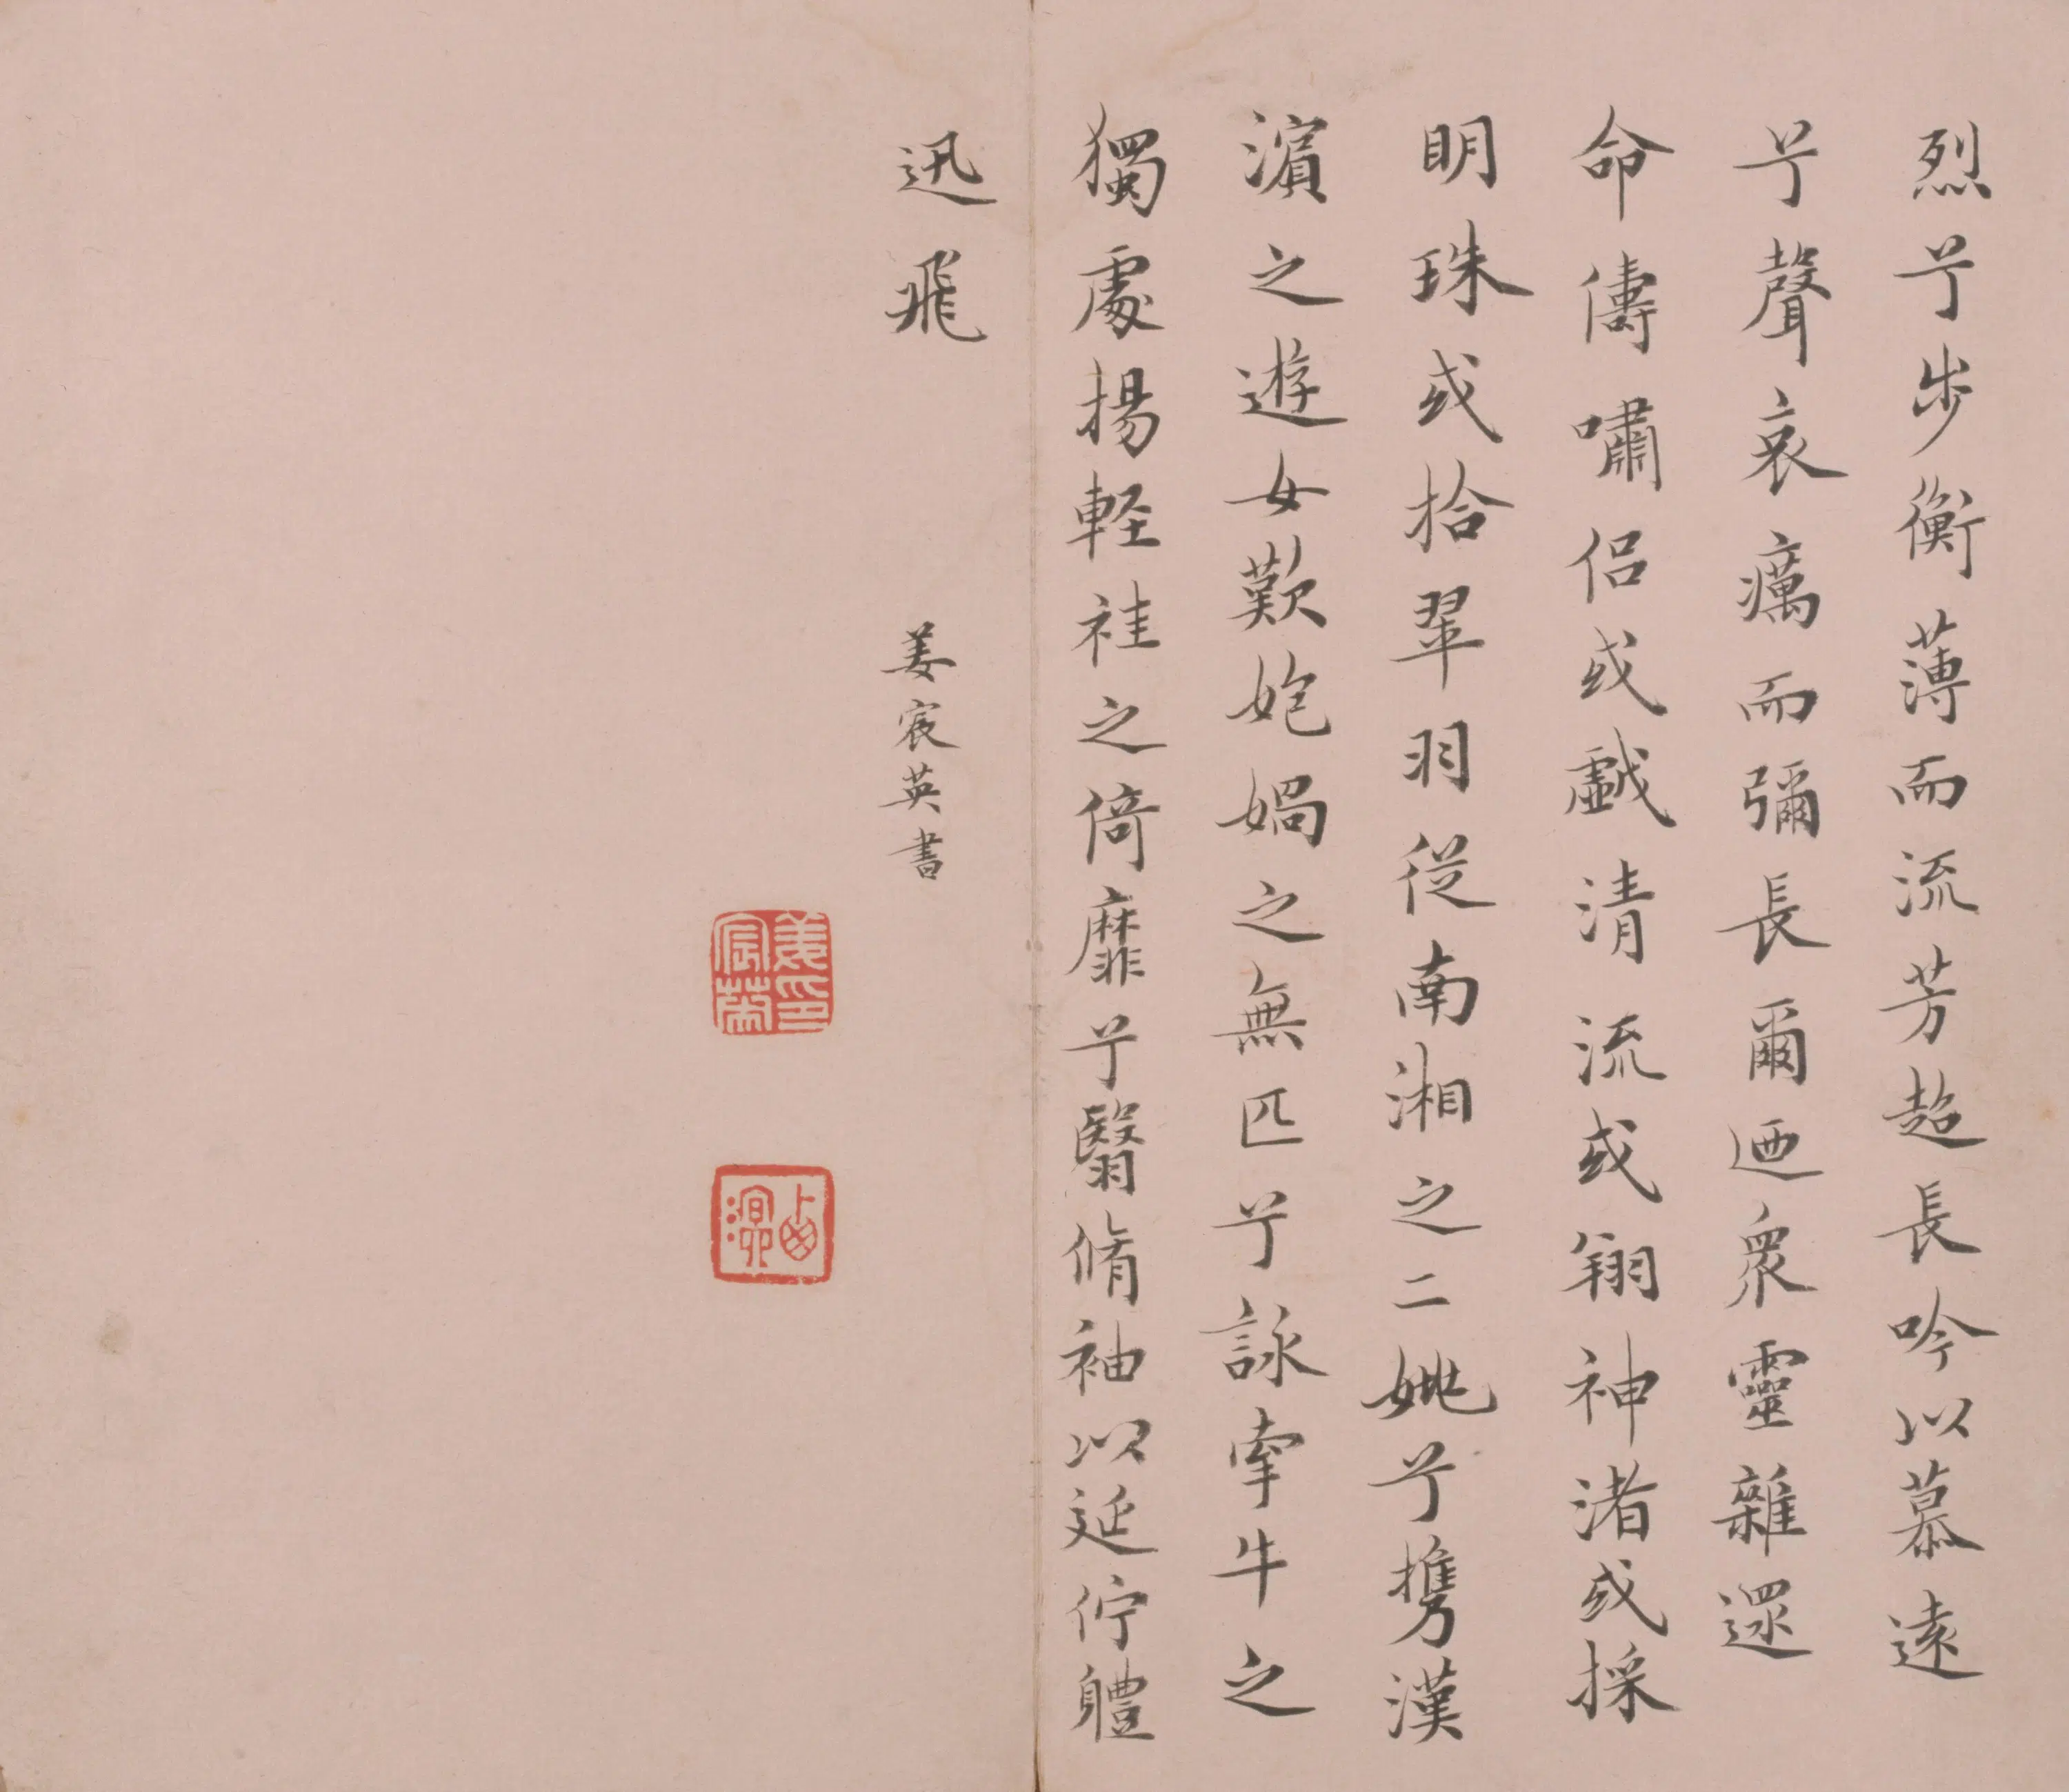 烈兮步衡薄而流芳超長吟以慕遠
兮聲哀癘而彌長爾迺衆靈雜遝
命儔嘯侶或戱清流或翔神渚或採
明珠或拾翠羽從南湘之二姚兮携漢
濵之遊女歎匏媧之無匹兮詠牽牛之
獨處揚軽袿之倚靡兮翳脩袖以延佇軆
迅飛
姜宸英書
姜宸英印